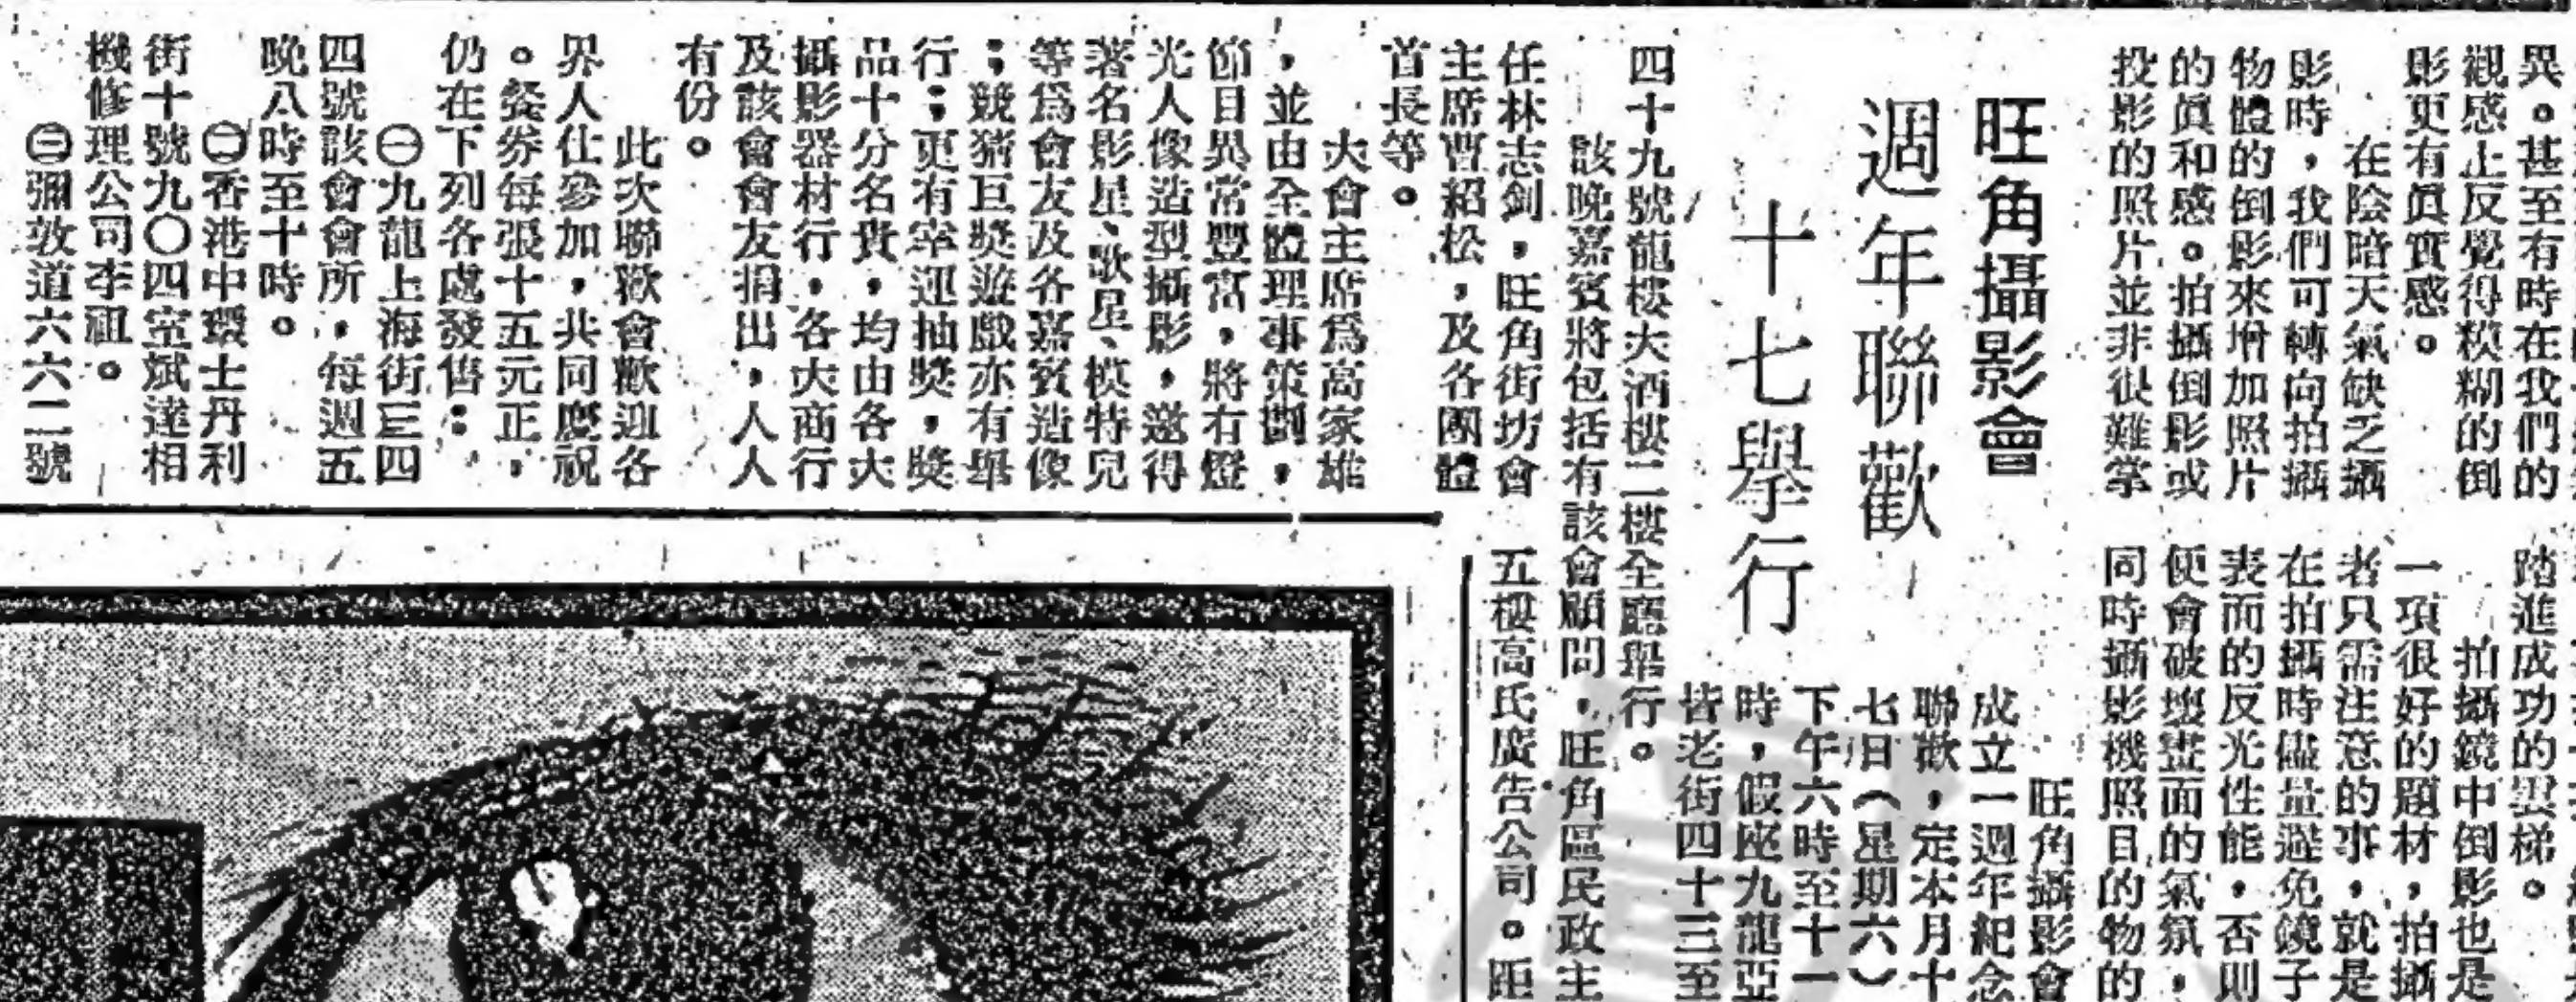 異。甚至有時在我們的
觀感上反覺得較糢糊的倒
影更有眞實感。
在陰暗天氣缺乏攝
影時，我們可轉向拍攝
物體的倒影來增加照片
的眞和感。拍攝倒影或
投影的照片並非很難掌
踏進成功的雲梯。
拍攝鏡中倒影也是
一項很好的題材，拍攝
者只需注意的事，就是
在拍攝時儘量避免鏡子
表面的反光性能，否則
便會破壞畫面的氣氛，
同時攝影機照目的物的
旺角攝影會
週年聯歡
十七舉行
旺角攝影會
成立一週年紀念
聯歡，定本月十
七日（星期六）
下午六時至十一
時，假座九龍亞
皆老街四十三至
四十九號龍樓大酒樓二樓全廳舉行。
該晚嘉賓將包括有該會顧問，旺角區民政主
任林志釗，旺角街坊會
主席曹紹松，及各團體
首長等。
大會主席爲高家雄
，並由全體理事策劃，
節目異常豐富，將有燈
光人像造型攝影，邀得
著名影星、歌星、模特兒
等爲會友及各嘉賓造像
；競猜巨獎遊戲亦有舉
行；更有幸運抽獎，獎
品十分名貴，均由各大
攝影器材行，各大商行
及該會會友捐出，人人
有份。
此次聯歡會歡迎各
界人仕參加，共同慶祝
。餐券每張十五元正，
仍在下列各處發售：
㊀九龍上海街三四
四號該會會所，每週五
晚八時至十時。
㊁香港中環士丹利
街十號九〇四室斌達相
機修理公司李祖。
㊂彌敦道六六二號
五樓高氏廣告公司。距